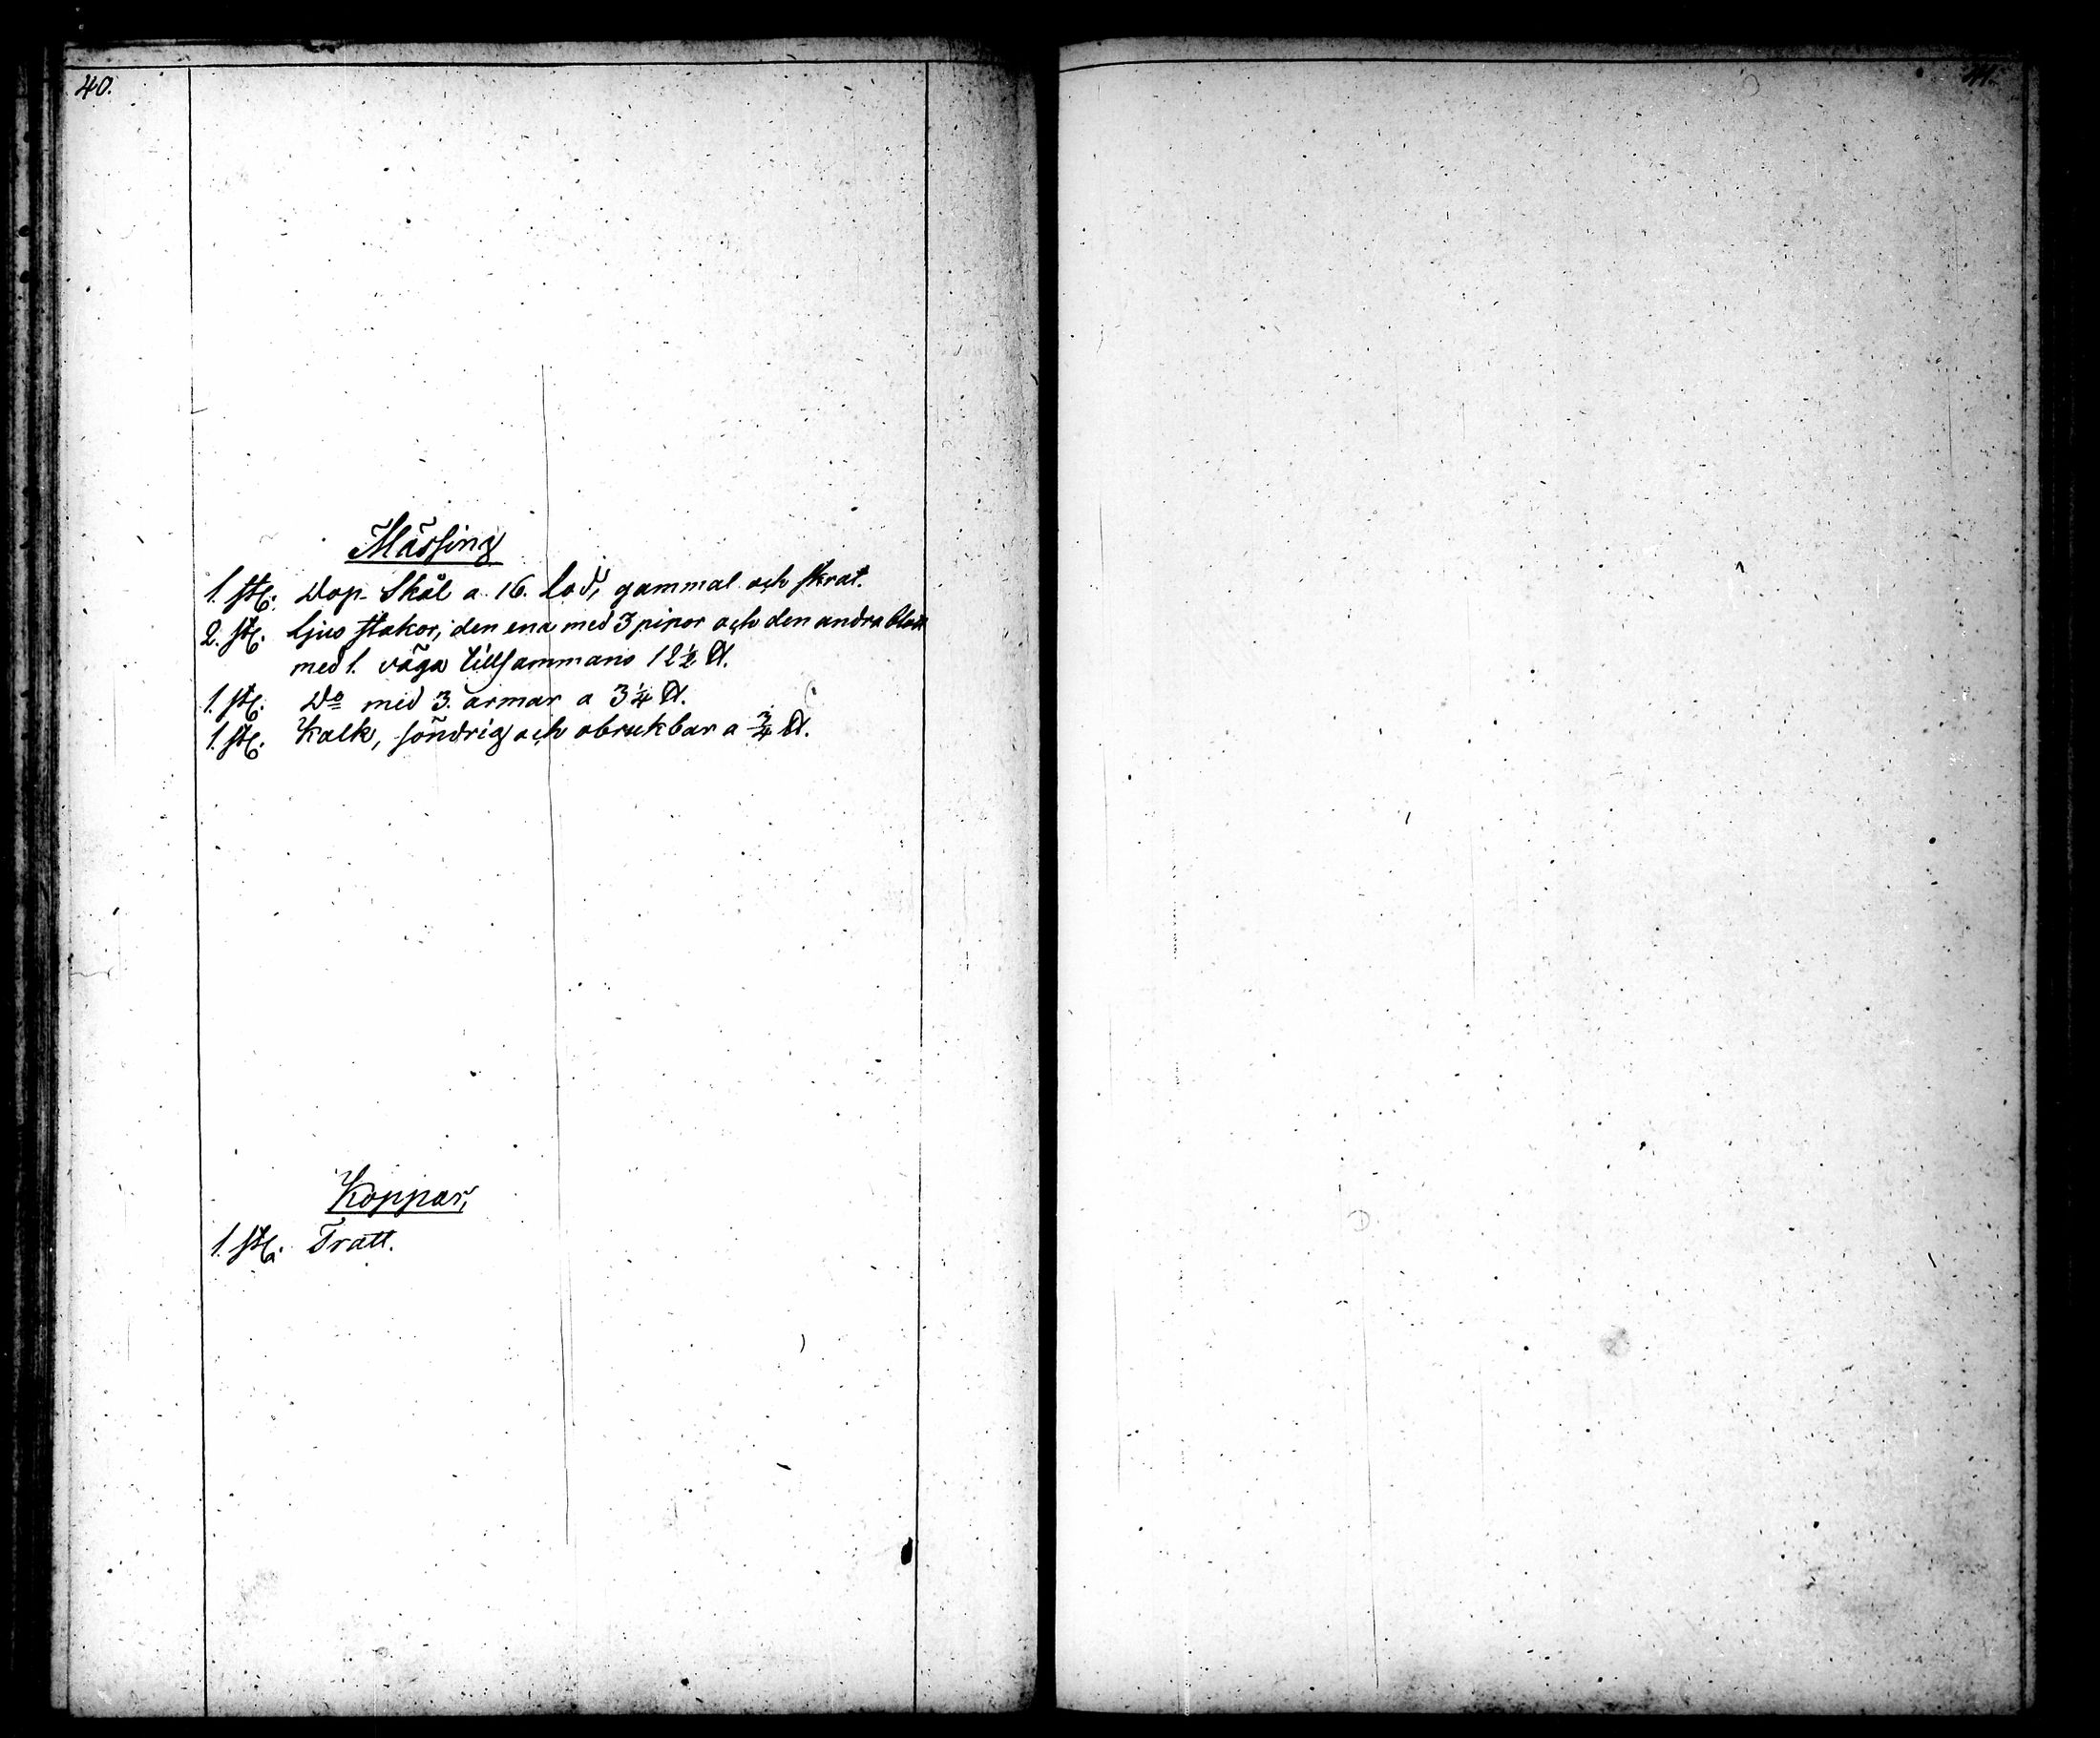 40.
41.
Mässing
1. st. Dop-Skål a 16. Lod, gammal och skrat.
2. st. Ljus stakor, den ena med 3 pipor och den andra blott
med 1. väga tillsammans 12 1/2 ℔.
1. st. Do med 3. armar a 3 1/4 ℔.
1. st. Kalk, söndrig och obrukbar a 3/4 ℔.
Koppar,
1. st. Tratt.